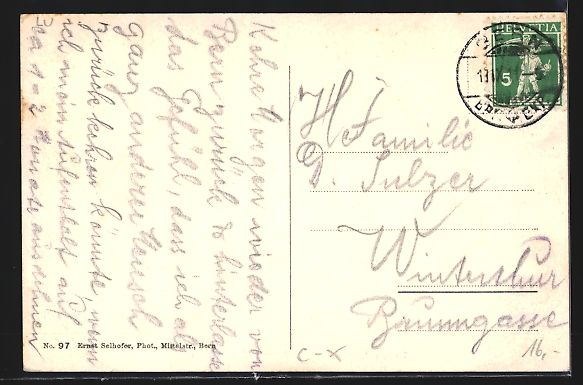 Kehre Morgen wieder von
Bern zurück & hinterlasse
das Gefühl, dass ich als
ganz anderer Mensch
zurück kehren könnte, wenn
ich mein Aufenthalt auf
1-2 Monate ausdehnen
HELVETIA
5
H Familie
D. Sulzer
Winterthur
Baumgasse
No. 97 Ernst Selhofer, Phot., Mittelstr., Bern
C-X
16,-